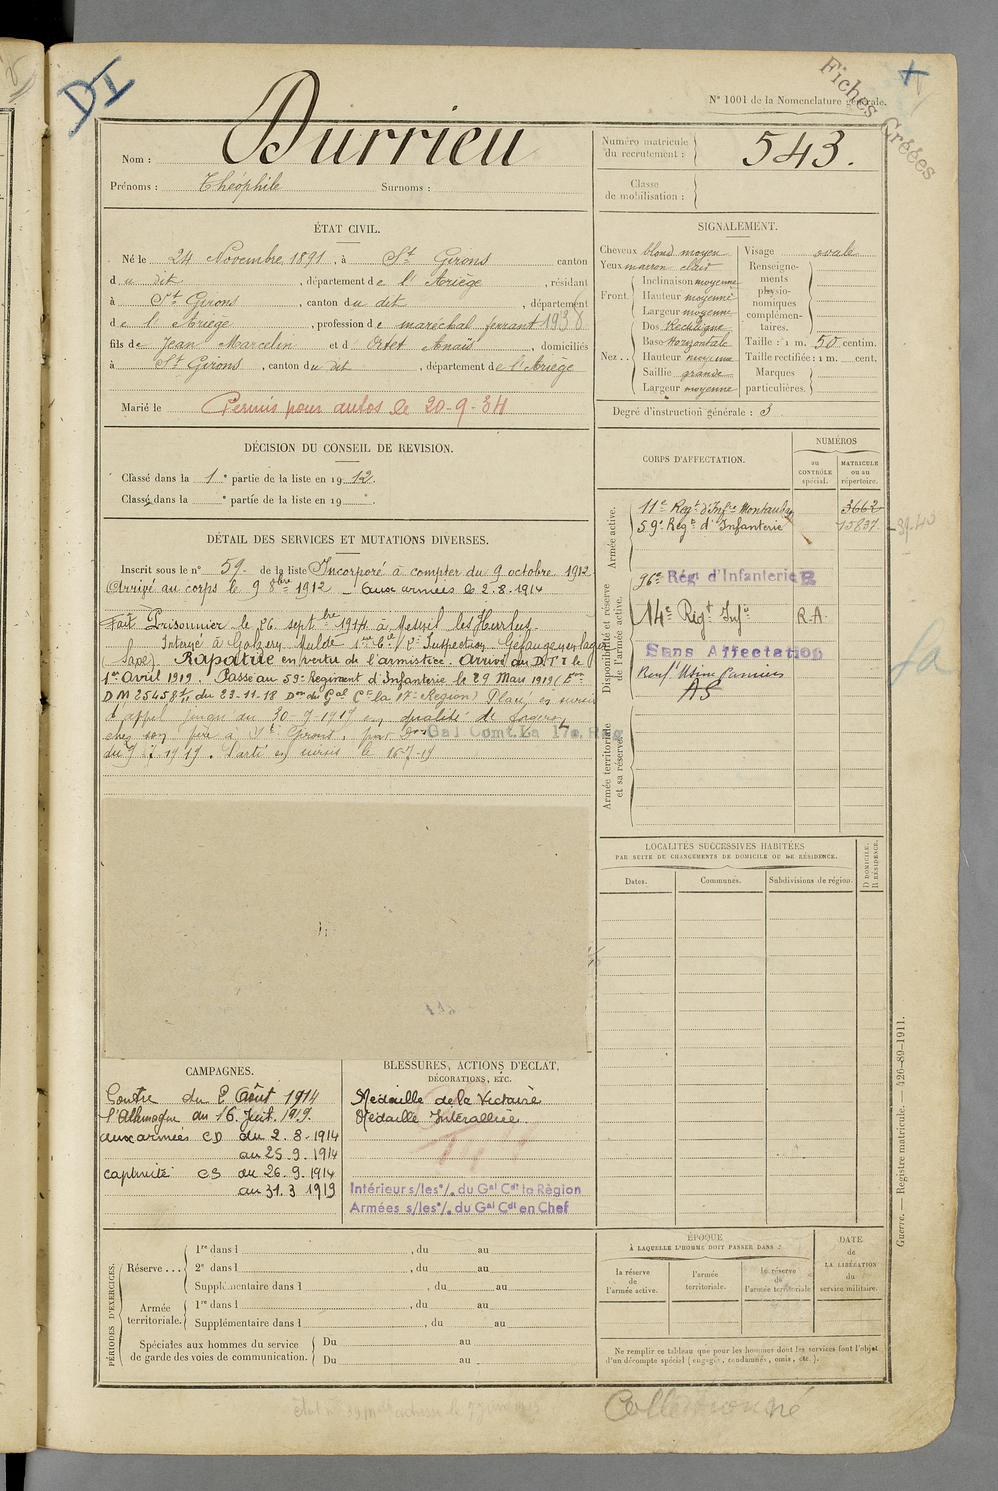 DI
Fiches Créées
N° 1001 de la Nomenclature générale.
Nom : Durrieu
Prénoms : Théophile Surnoms :
Numéro matricule du recrutement : 543.
Classe de mobilisation :
ÉTAT CIVIL.
Né le 24 Novembre 1891, à St Girons canton
du dit, département de l'Ariège, résidant
à St Girons, canton du dit, département
de l'Ariège, profession de maréchal ferrant 1938
fils de Jean Marcelin et d'Ortet Anaïs, domiciliés
à St Girons, canton du dit, département de l'Ariège
Marié le Permis pour autos le 20-9-34
SIGNALEMENT.
Cheveux blond moyen
Yeux marron clair
Front. Inclinaison moyenne
Hauteur moyenne
Largeur moyenne
Nez .. Dos Rectiligne
Base Horizontale
Hauteur moyenne
Saillie grande
Largeur moyenne
Visage ovale
Renseignements physionomiques complémentaires.
Taille : 1 m. 50 centim.
Taille rectifiée : 1 m. cent.
Marques particulières.
Degré d'instruction générale : 3
DÉCISION DU CONSEIL DE REVISION.
Classé dans la 1e partie de la liste en 1912.
Classé dans la e partie de la liste en 19
DÉTAIL DES SERVICES ET MUTATIONS DIVERSES.
Inscrit sous le n° 59 de la liste Incorporé à compter du 9 octobre 1912
Arrivé au corps le 9 8bre 1912 – Aux armées le 2.8.1914
Fait Prisonnier le 26 septbre 1914 à Mesnil les Hurlus
Interné à Golzern Mulde 1re Cie Inspection Gefangenenlager
(Saxe). Rapatrié en vertu de l'armistice. Arrivé au D.T.I le
1er Avril 1919. Passé au 59e Régiment d'Infanterie le 29 Mars 1919
DM 25458 du 23-11-18 Don du Gal Ct la 17e Région) Placé en sursis
d'appel jusqu'au 30-9-1919 en qualité de forgeron
chez son père à St Girons, par Don Gal Comt. La 17e Rég
du 1919. Parti en sursis le 16-7-19
CORPS D'AFFECTATION.
NUMÉROS
au CONTRÔLE spécial.
MATRICULE ou au répertoire.
Armée active.
11e Regt d'Infie Montauban 3662
59e Regt d'Infanterie 15837
39-40
Disponibilité et réserve de l'armée active.
96e Régt d'Infanterie
14e Régt Infie R.A.
Sans Affectation
Renf! Usine Pamiers
AS
Armée territoriale et sa réserve.
LOCALITÉS SUCCESSIVES HABITÉES
PAR SUITE DE CHANGEMENTS DE DOMICILE OU DE RÉSIDENCE.
Dates. Communes. Subdivisions de région. D DOMICILE. R RÉSIDENCE.
CAMPAGNES.
Contre du 2 Août 1914
l'Allemagne au 16 Juil. 1919.
aux armées CD du 2.8.1914
au 25.9.1914
captivité CS du 26.9.1914
au 31.3 1919
BLESSURES, ACTIONS D'ÉCLAT,
DÉCORATIONS, ETC.
Médaille de la Victoire
Médaille Interalliée.
Intérieur s/les °/. du Gal Cdt la Région
Armées s/les °/. du Gal Cdt en Chef
PÉRIODES D'EXERCICES.
Réserve ... 1re dans l , du au
2e dans l , du au
Supplémentaire dans l , du au
Armée territoriale. 1re dans l , du au
Supplémentaire dans l , du au
Spéciales aux hommes du service de garde des voies de communication. Du au
Du au
ÉPOQUE
À LAQUELLE L'HOMME DOIT PASSER DANS :
la réserve de l'armée active.
l'armée territoriale.
la réserve de l'armée territoriale
DATE de LA LIBÉRATION du service militaire.
Ne remplir ce tableau que pour les hommes dont les services font l'objet
d'un décompte spécial (engagés, condamnés, omis, etc.).
Guerre. — Registre matricule. — 426-89-1911.
Collectionné